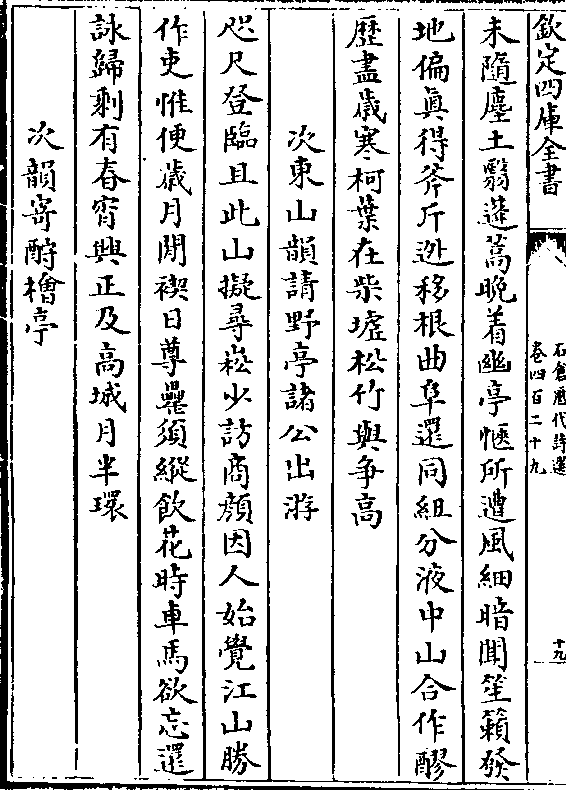 欽定四庫全書
石倉歷代詩選
卷四百二十九
十九
未隨塵土翳蓬蒿晚着幽亭愜所遭風細暗聞笙籟發
地偏真得斧斤逃移根曲阜還同組分液中山合作醪
歷盡歲寒柯葉在柴墟松竹與争高
次東山韻請野亭諸公出游
咫尺登臨且此山擬尋崧少訪商顔因人始覺江山勝
作吏惟便歲月閒禊日尊罍須縱飲花時車馬欲忘還
詠歸剩有春宵興正及高城月半環
次韻寄酧檜亭